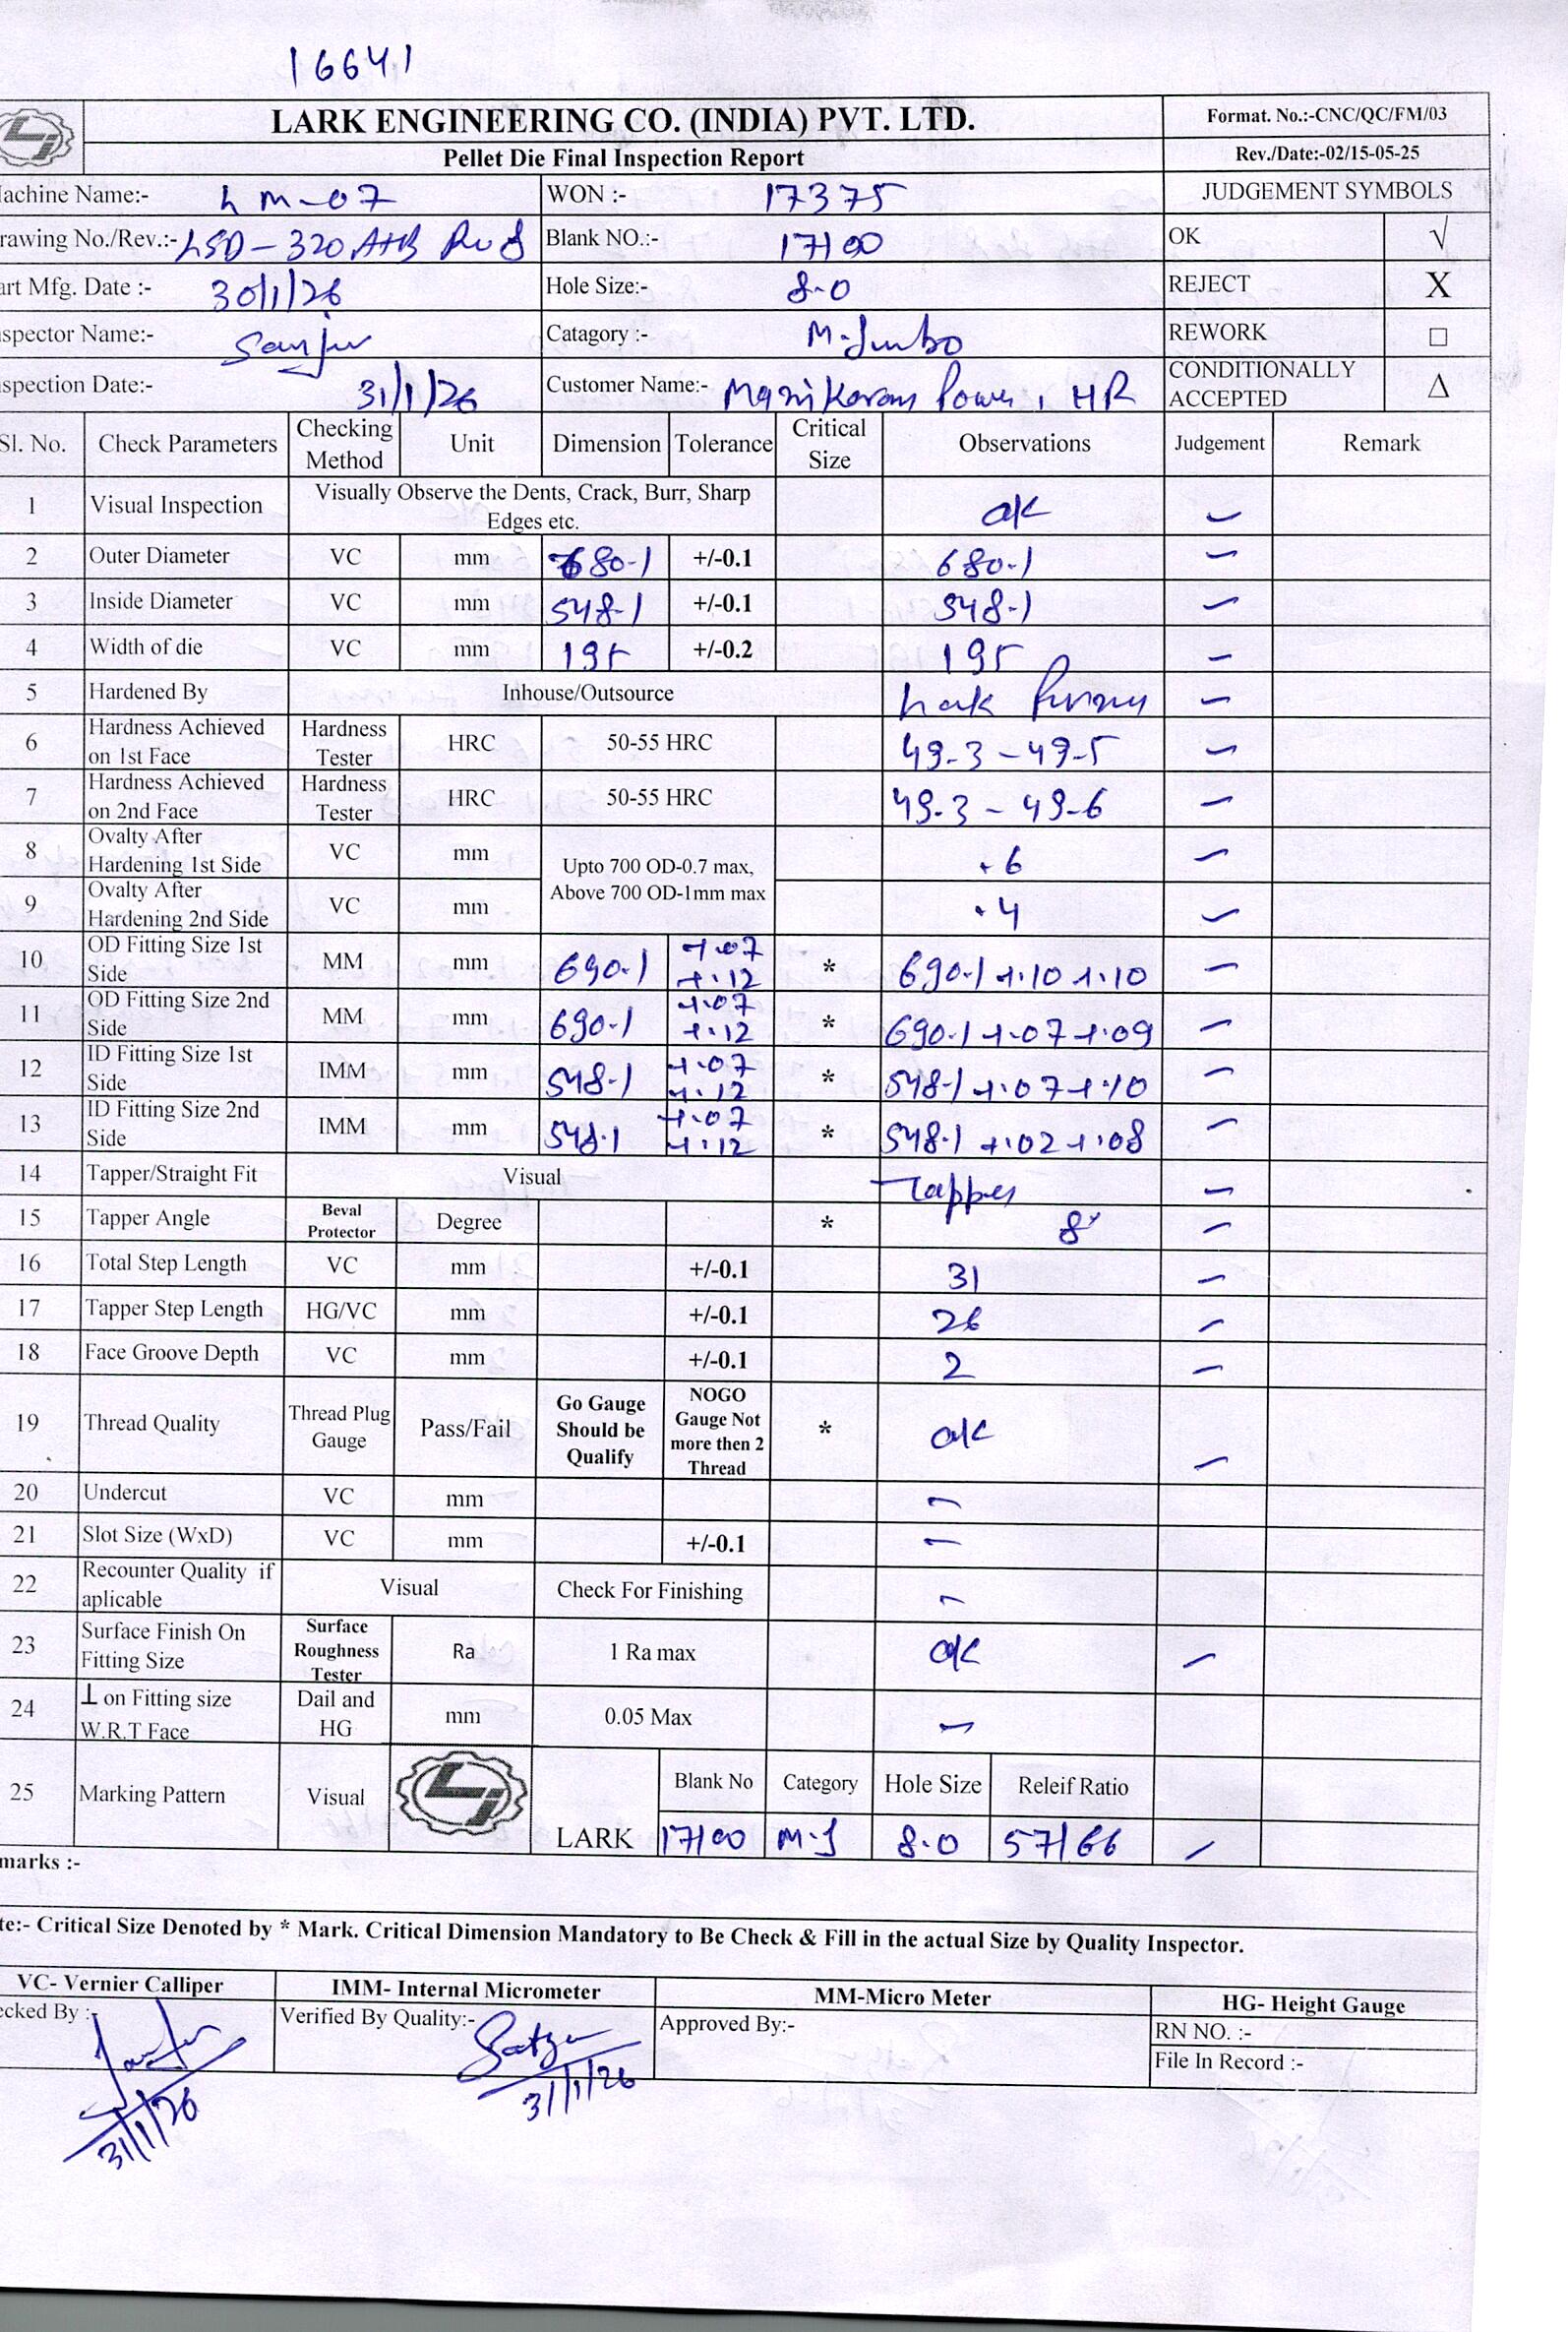 16641
LARK ENGINEERING CO. (INDIA) PVT. LTD.
Format. No.:-CNC/QC/FM/03
Pellet Die Final Inspection Report
Rev./Date:-02/15-05-25
achine Name:- LM-07 WON :- 17375 JUDGEMENT SYMBOLS
rawing No./Rev.:- LSD-320 A+B Blank NO.:- 17100 OK √
art Mfg. Date :- 30/1/26 Hole Size:- 8.0 REJECT X
spector Name:- Sanju Catagory :- M.Jumbo REWORK □
spection Date:- 31/1/26 Customer Name:- Manikaran Power, HR CONDITIONALLY ACCEPTED Δ
Sl. No. Check Parameters Checking Method Unit Dimension Tolerance Critical Size Observations Judgement Remark
1 Visual Inspection Visually Observe the Dents, Crack, Burr, Sharp Edges etc. ok
2 Outer Diameter VC mm 680.1 +/-0.1 680.1
3 Inside Diameter VC mm 548.1 +/-0.1 548.1
4 Width of die VC mm 195 +/-0.2 195
5 Hardened By Inhouse/Outsource Lark
6 Hardness Achieved on 1st Face Hardness Tester HRC 50-55 HRC 49.3 - 49.5
7 Hardness Achieved on 2nd Face Hardness Tester HRC 50-55 HRC 49.3 - 49.6
8 Ovalty After Hardening 1st Side VC mm Upto 700 OD-0.7 max, Above 700 OD-1mm max .6
9 Ovalty After Hardening 2nd Side VC mm .4
10 OD Fitting Size 1st Side MM mm 690.1 +.07 +.12 * 690.1 +.10 +.10
11 OD Fitting Size 2nd Side MM mm 690.1 +.07 +.12 * 690.1 +.07 +.09
12 ID Fitting Size 1st Side IMM mm 548.1 +.07 +.12 * 548.1 +.07 +.10
13 ID Fitting Size 2nd Side IMM mm 548.1 +.07 +.12 * 548.1 +.02 +.08
14 Tapper/Straight Fit Visual Tapper
15 Tapper Angle Beval Protector Degree * 8°
16 Total Step Length VC mm +/-0.1 31
17 Tapper Step Length HG/VC mm +/-0.1 26
18 Face Groove Depth VC mm +/-0.1 2
19 Thread Quality Thread Plug Gauge Pass/Fail Go Gauge Should be Qualify NOGO Gauge Not more then 2 Thread * ok
20 Undercut VC mm -
21 Slot Size (WxD) VC mm +/-0.1 -
22 Recounter Quality if aplicable Visual Check For Finishing -
23 Surface Finish On Fitting Size Surface Roughness Tester Ra 1 Ra max ok
24 ⊥ on Fitting size W.R.T Face Dail and HG mm 0.05 Max -
25 Marking Pattern Visual LARK Blank No Category Hole Size Releif Ratio
17100 M.J 8.0 57/66
marks :-
te:- Critical Size Denoted by * Mark. Critical Dimension Mandatory to Be Check & Fill in the actual Size by Quality Inspector.
VC- Vernier Calliper IMM- Internal Micrometer MM-Micro Meter HG- Height Gauge
ecked By :- Verified By Quality:- Approved By:- RN NO. :-
File In Record :-
31/1/26 31/1/26